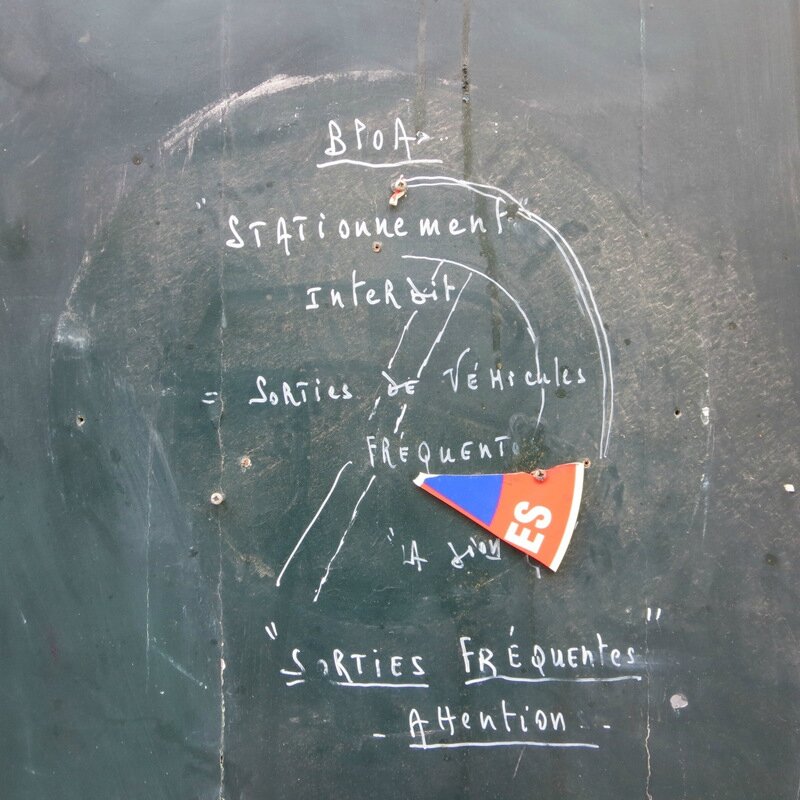 BPOA
"STATionnement"
InteRdit
= SORTies de VÉHicules
FRÉQUENT
ES
"LA
"SORTIES FRÉQUentes"
- Attention -